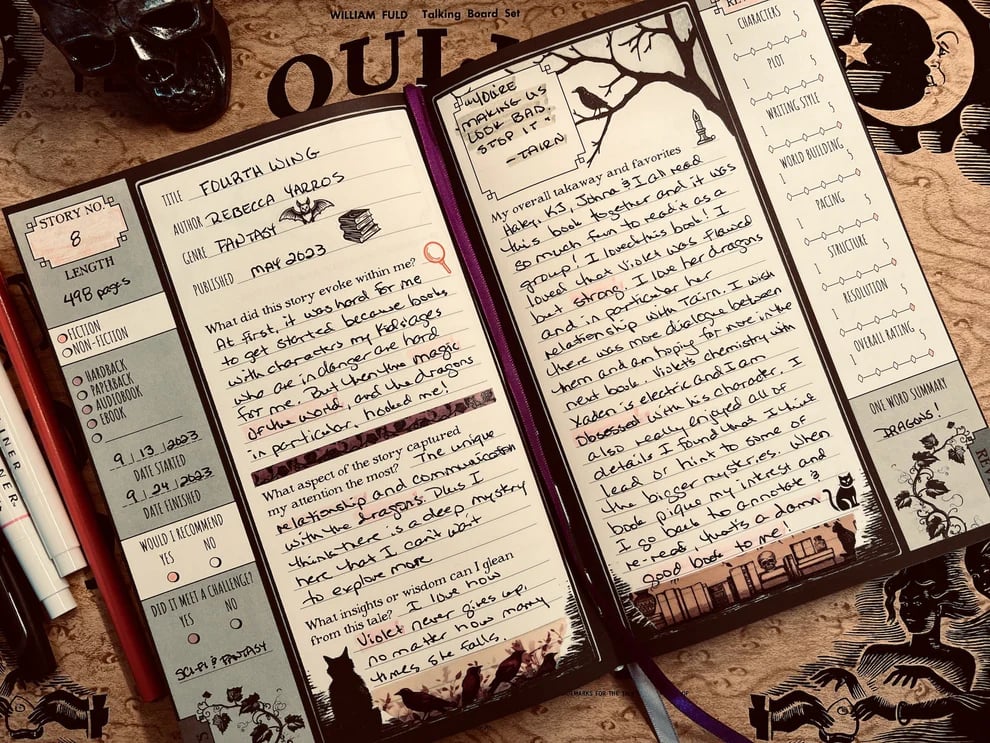 WILLIAM FULD Talking Board Set
OUI
STORY NO.
8
LENGTH
498 pages
FICTION
NON-FICTION
HARDBACK
PAPERBACK
AUDIOBOOK
EBOOK
9/13/2023
DATE STARTED
9/24/2023
DATE FINISHED
WOULD I RECOMMEND
YES NO
DID IT MEET A CHALLENGE?
YES NO
SCI-FI & FANTASY
TITLE FOURTH WING
AUTHOR REBECCA YARROS
GENRE FANTASY
PUBLISHED MAY 2023
What did this story evoke within me?
At first, it was hard for me
to get started because books
with characters my kids ages
who are in danger are hard
for me. But then the magic
of the world, and the dragons
in particular, hooked me!
What aspect of the story captured
my attention the most? The unique
relationship and communication
with the dragons. Plus I
think there is a deep mystery
here that I can't wait
to explore more
What insights or wisdom can I glean
from this tale? I love how
Violet never gives up,
no matter how many
times she falls.
"YOU'RE
MAKING US
LOOK BAD.
STOP IT."
-TAIRN
My overall takaway and favorites
Haley, KJ, Johna & I all read
this book together and it was
so much fun to read it as a
group! I loved this book! I
loved that Violet was flawed
but strong. I love her dragons
and in particular her
relationship with Tairn. I wish
there was more dialogue between
them and am hoping for more in the
next book. Violet's chemistry with
Xaden is electric and I am
obsessed with his character. I
also really enjoyed all of
details I found that I think
lead or hint to some of
the bigger mysteries. When
book pique my intrest and
I go back to annotate &
re-read, that's a damn
good book to me!
CHARACTERS
1 5
PLOT
1 5
WRITING STYLE
1 5
WORLD BUILDING
1 5
PACING
1 5
STRUCTURE
1 5
RESOLUTION
1 5
OVERALL RATING
1 5
ONE WORD SUMMARY
DRAGONS!